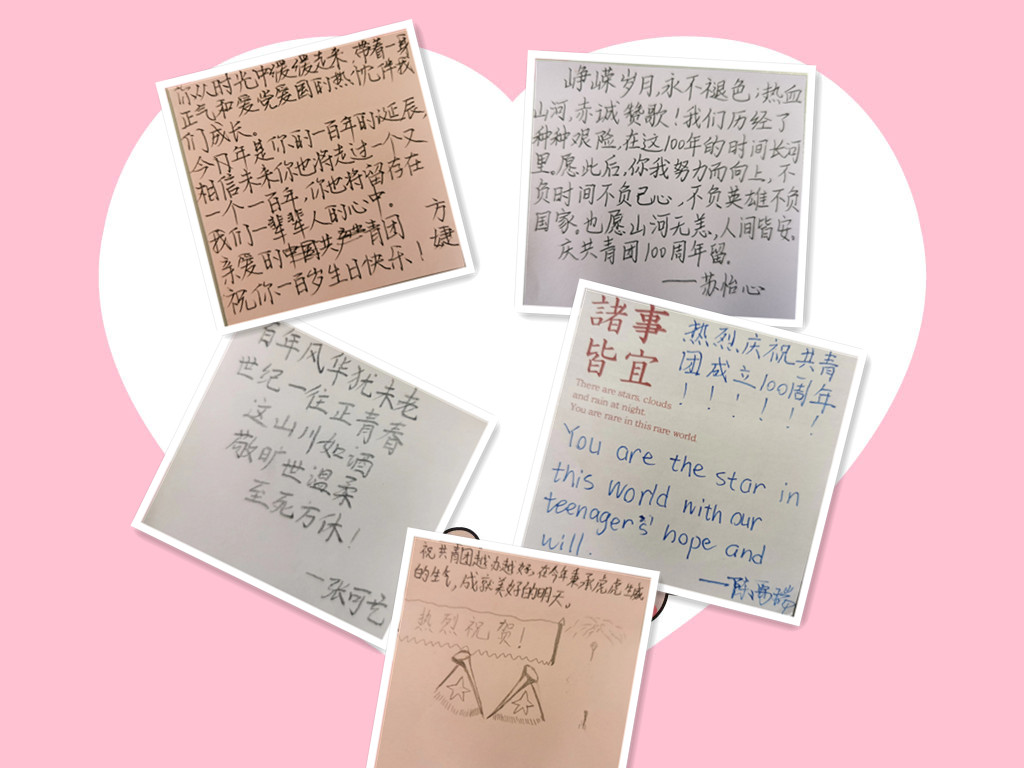 你从时光中缓缓走来,带着一身
正气和爱党爱国的热忱伴我
们成长。
今年是你的一百年的诞辰,
相信未来你也将走过一个又
一个一百年,你也将留存在
我们一辈辈人的心中。
亲爱的中国共青团
祝你一百岁生日快乐!
方
婕
峥嵘岁月,永不褪色;热血
山河,赤诚赞歌!我们历经了
种种艰险,在这100年的时间长河
里。愿此后,你我努力而向上,不
负时间不负己心,不负英雄不负
国家。也愿山河无恙,人间皆安.
庆共青团100周年留.
——苏怡心
百年风华犹未老
世纪一往正青春
这山川如酒
敬旷世温柔
至死方休!
—张可艺
諸事
皆宜
There are stars, clouds
and rain at night.
You are rare in this rare world
热烈庆祝共青
团成立100周年
! ! ! ! ! !
You are the star in
this world with our
teenagers' hope and
will.
祝共青团越办越好,在今年秉承虎虎生威
的生气,成就美好的明天。
热烈祝贺!